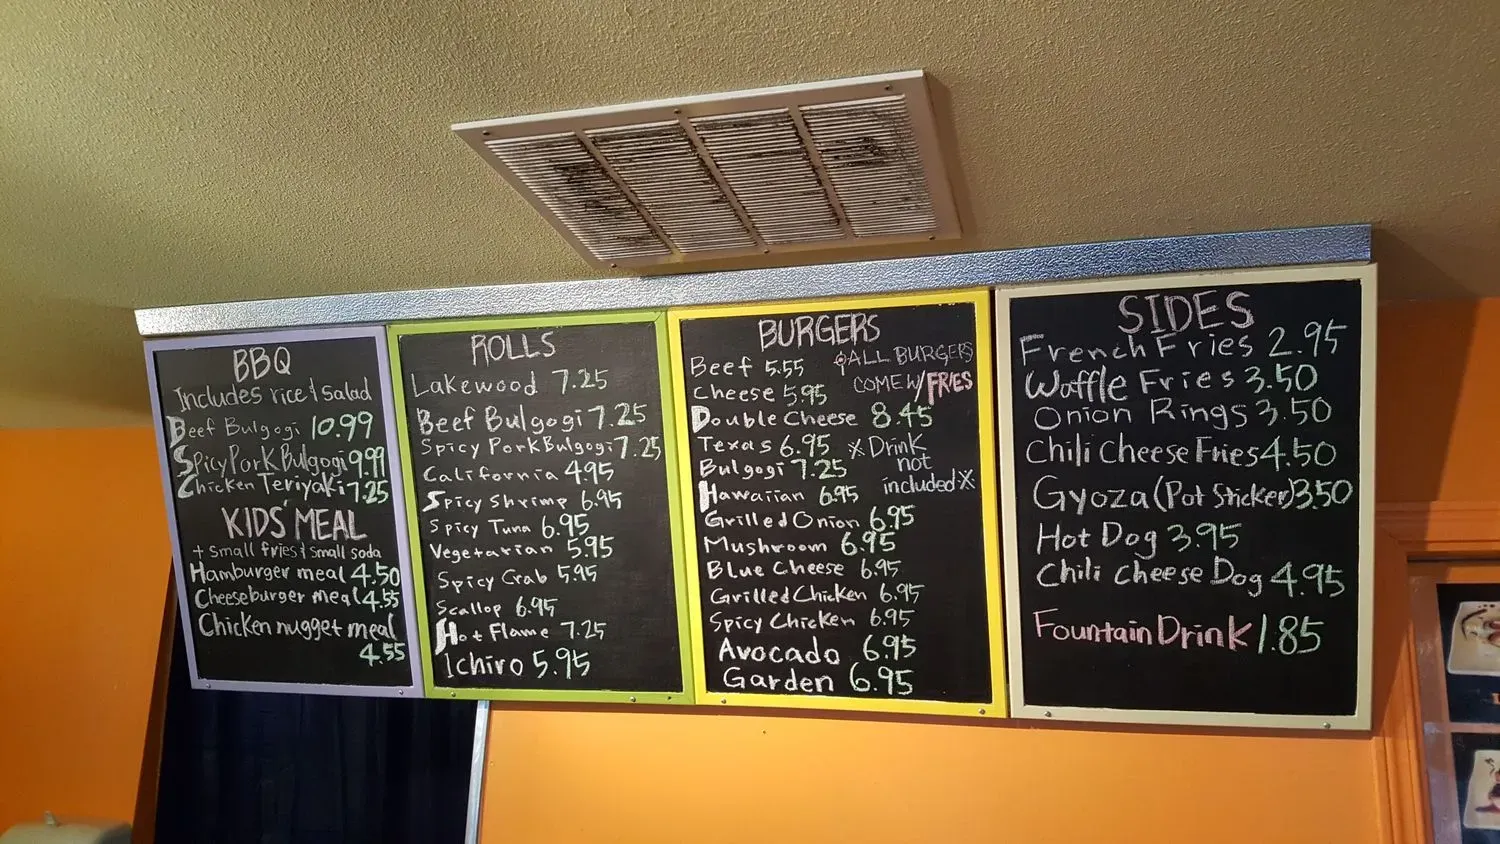 BBQ
Includes rice & Salad
Beef Bulgogi 10.99
Spicy Pork Bulgogi 9.99
Chicken Teriyaki 7.25
KIDS' MEAL
+ small fries & small soda
Hamburger meal 4.50
Cheeseburger meal 4.55
Chicken nugget meal
4.55
ROLLS
Lakewood 7.25
Beef Bulgogi 7.25
Spicy Pork Bulgogi 7.25
California 4.95
Spicy Shrimp 6.95
Spicy Tuna 6.95
Vegetarian 5.95
Spicy Crab 5.95
Scallop 6.95
Hot Flame 7.25
Ichiro 5.95
BURGERS
ALL BURGERS
COME W/ FRIES
Beef 5.55
Cheese 5.95
Double Cheese 8.45
Texas 6.95
※ Drink
not
included ※
Bulgogi 7.25
Hawaiian 6.95
Grilled Onion 6.95
Mushroom 6.95
Blue Cheese 6.95
Grilled Chicken 6.95
Spicy Chicken 6.95
Avocado 6.95
Garden 6.95
SIDES
French Fries 2.95
Waffle Fries 3.50
Onion Rings 3.50
Chili Cheese Fries 4.50
Gyoza (Pot Sticker) 3.50
Hot Dog 3.95
Chili Cheese Dog 4.95
Fountain Drink 1.85